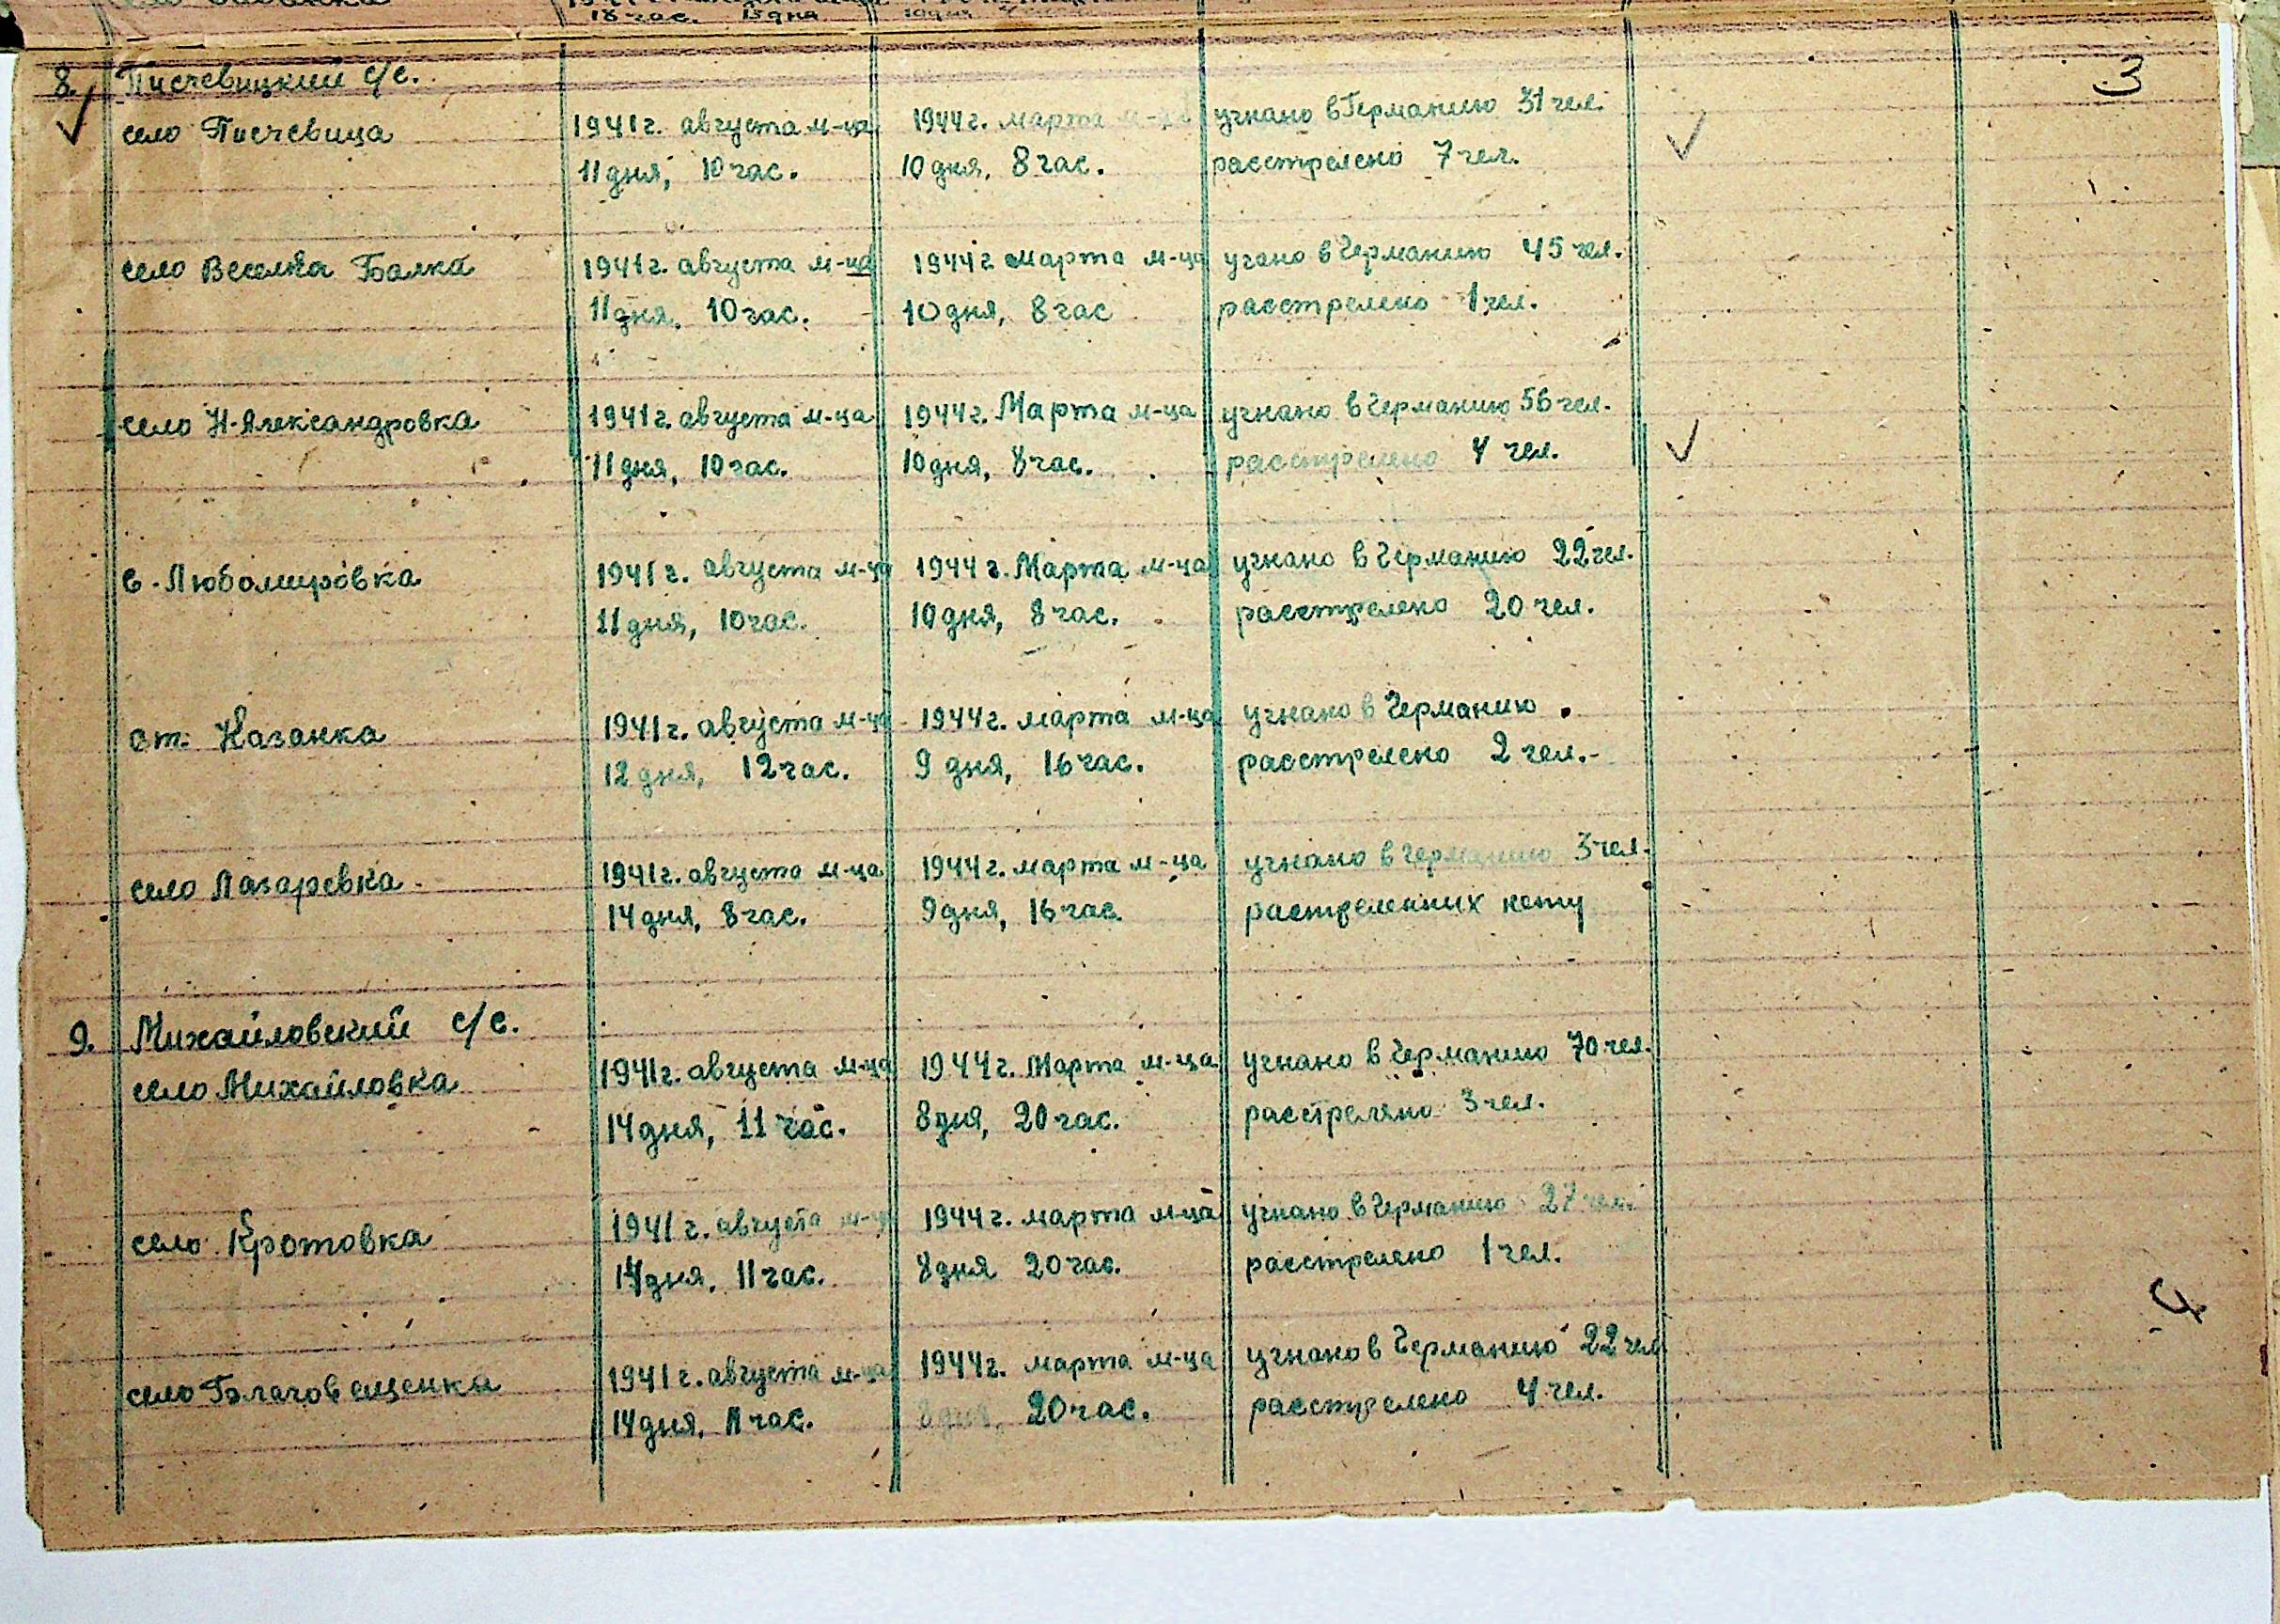 18 час. 15 дня
8. Писчевицкий с/с.
3
село Писчевица 1941г. августа м-ца 1944г. марта м-ца угнано в Германию 31 чел.
11 дня, 10 час. 10 дня, 8 час. расстрелено 7 чел.
село Веселяа Балка 1941г. августа м-ца 1944г марта м-ца угано в Германию 45 чел.
11 дня, 10 час. 10 дня, 8 час расстрелено 1 чел.
село Н-Александровка 1941г. августа м-ца 1944г. Марта м-ца угнано в Германию 56 чел.
11 дня, 10 час. 10 дня, 8 час. расстрелено 4 чел.
с. Любомировка 1941г. августа м-ца 1944г. Марта м-ца угнано в Германию 22 чел.
11 дня, 10 час. 10 дня, 8 час. расстрелено 20 чел.
ст. Казанка 1941г. августа м-ца 1944г. марта м-ца угнано в Германию
12 дня, 12 час. 9 дня, 16 час. расстрелено 2 чел.-
село Лазаревка 1941г. августа м-ца 1944г. марта м-ца угнано в Германию 3 чел.
14 дня, 8 час. 9 дня, 16 час. растреленних нету
9. Михайловский с/с.
село Михайловка 1941г. августа м-ца 1944г. Марта м-ца угнано в Германию 70 чел.
14 дня, 11 час. 8 дня, 20 час. расстреляно 3 чел.
село Кротовка 1941г. августа м-ца 1944г. марта м-ца угнано в Германию 27 чел.
14 дня, 11 час. 8 дня 20 час. расстрелено 1 чел.
село Благовещенка 1941г. августа м-ца 1944г. марта м-ца угнано в Германию 22 чел
14 дня, 11 час. 8 дня, 20 час. расстрелено 4 чел.